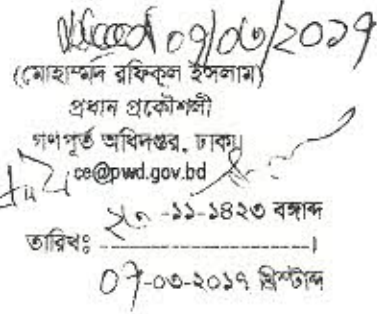 ০৭/০৩/২০১৭
(মোহাম্মদ রফিকুল ইসলাম)
প্রধান প্রকৌশলী
গণপূর্ত অধিদপ্তর, ঢাকা।
ce@pwd.gov.bd
২৩-১১-১৪২৩ বঙ্গাব্দ
তারিখঃ ---------------------।
০৭-০৩-২০১৭ খ্রিস্টাব্দ